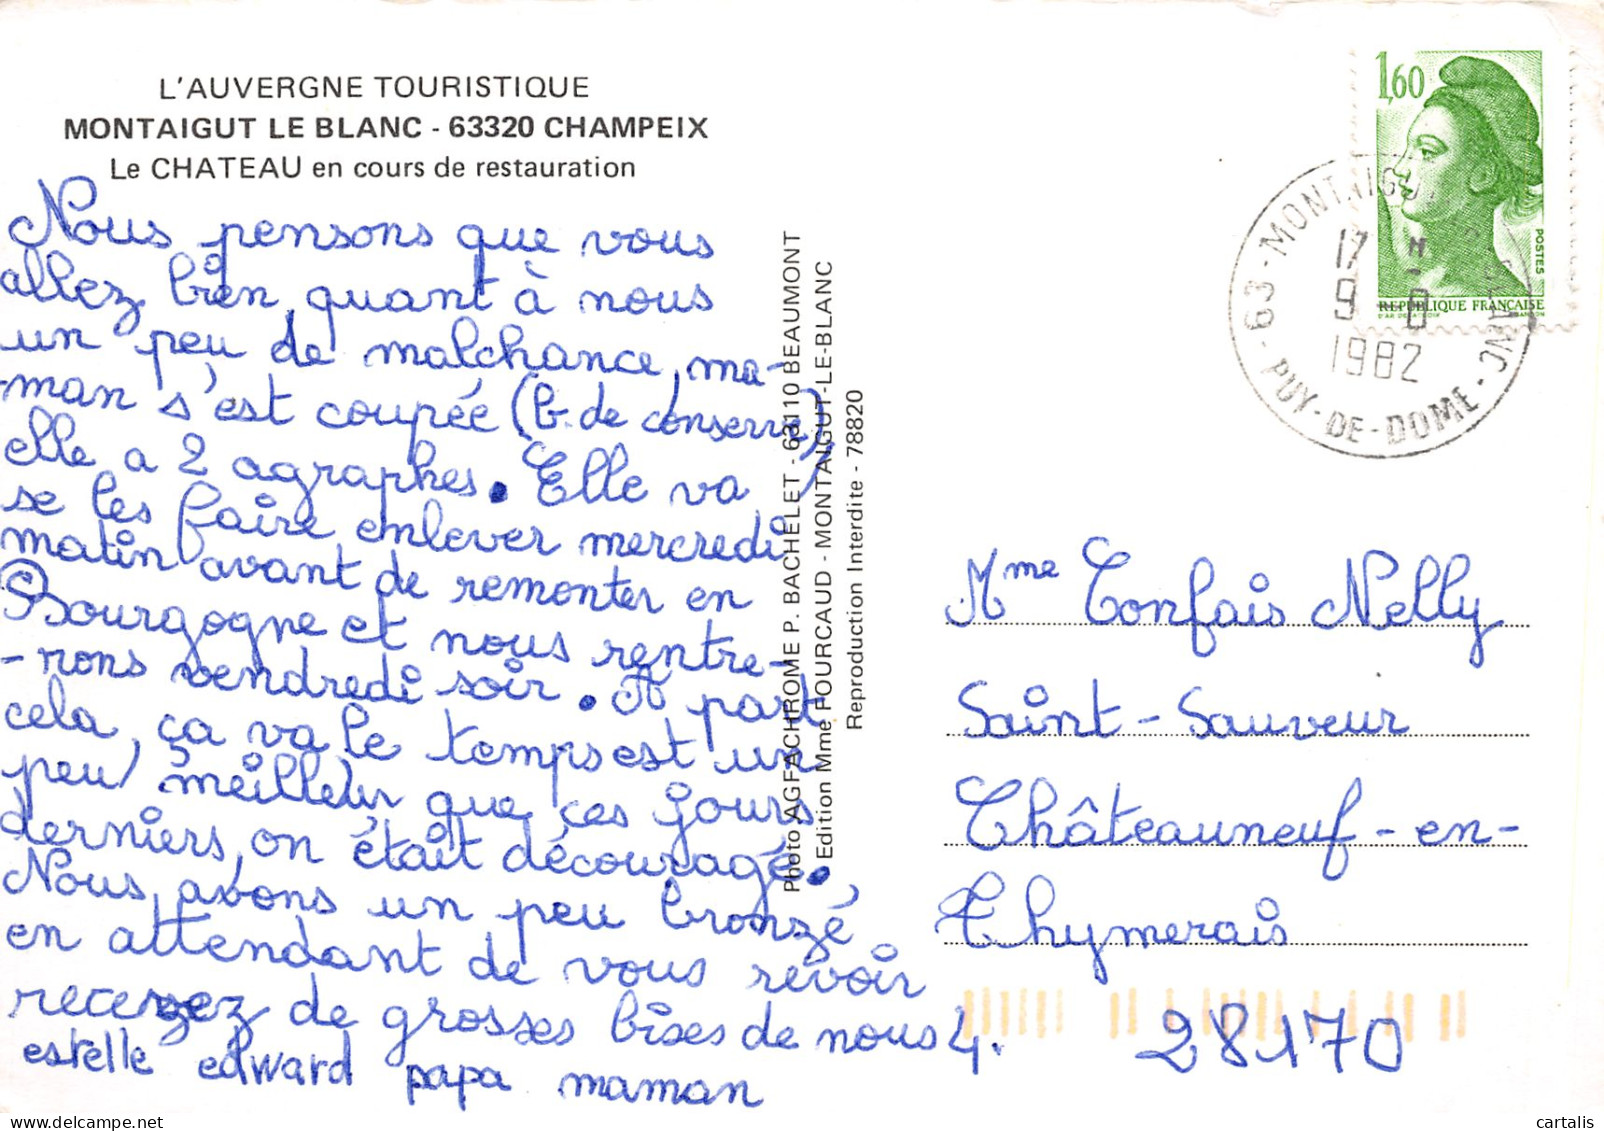 L'AUVERGNE TOURISTIQUE
MONTAIGUT LE BLANC - 63320 CHAMPEIX
Le CHATEAU en cours de restauration
Nous pensons que vous
allez bien, quant à nous
un peu de malchance, ma-
-man s'est coupée (b. de conserve),
elle a 2 agraphes. Elle va
se les faire enlever mercredi
matin avant de remonter en
Bourgogne et nous rentre-
-rons vendredi soir. A part
cela, ça va le temps est un
peu meilleur que ces jours
derniers, on était découragé.
Nous avons un peu bronzé,
en attendant de vous revoir
recevez de grosses bises de nous 4.
estelle edward papa maman
Photo AGFACHROME P. BACHELET - 63110 BEAUMONT
Edition Mme FOURCAUD - MONTAIGUT-LE-BLANC
Reproduction Interdite - 78820
1,60
POSTES
REPUBLIQUE FRANÇAISE
63 - MONTAIGUT LE BLANC - PUY-DE-DOME -
17 H
9 - 8
1982
Mme Confais Nelly
Saint-Sauveur
Châteauneuf-en-
Thymerais
28170
cartalis